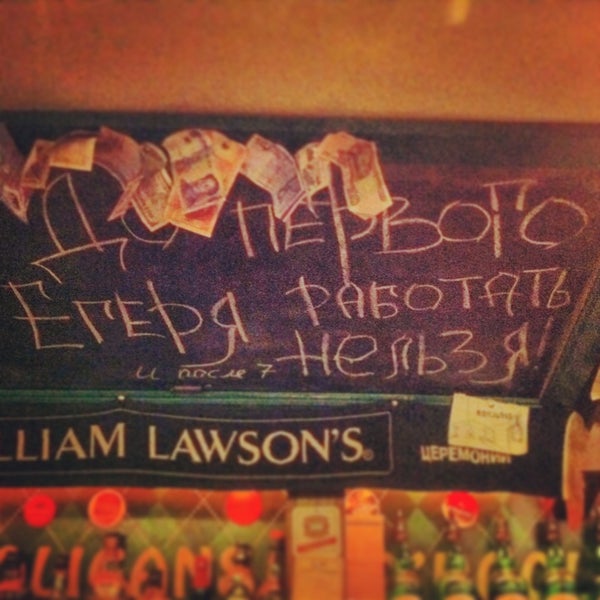 До первого
Егеря работать
нельзя!
и после 7
LLIAM LAWSON'S®
ЦЕРЕМОНИЙ